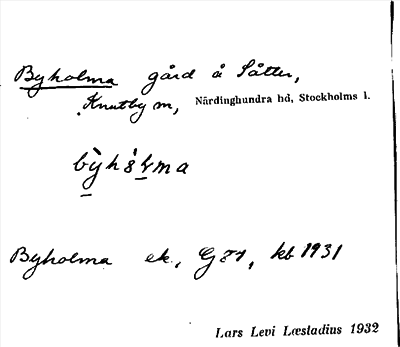 Byholma gård å Sätter,
Knutby sn, Närdinghundra hd, Stockholms l.
Byholma ek., G 89, kb 1931
Lars Levi Læstadius 1932